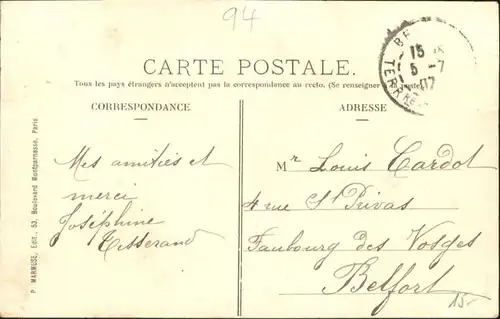 94
CARTE POSTALE.
Tous les pays étrangers n'acceptent pas la correspondance au recto. (Se renseigner à la poste)
CORRESPONDANCE
ADRESSE
Mes amitiés et
merci
Joséphine
Tisserand
Mr Louis Cardot
4 rue St Privas
Faubourg des Vosges
Belfort
15-
P. MARMUSE, Edit., 53, Boulevard Montparnasse, Paris.
BE
15
5 -7
07
TERR